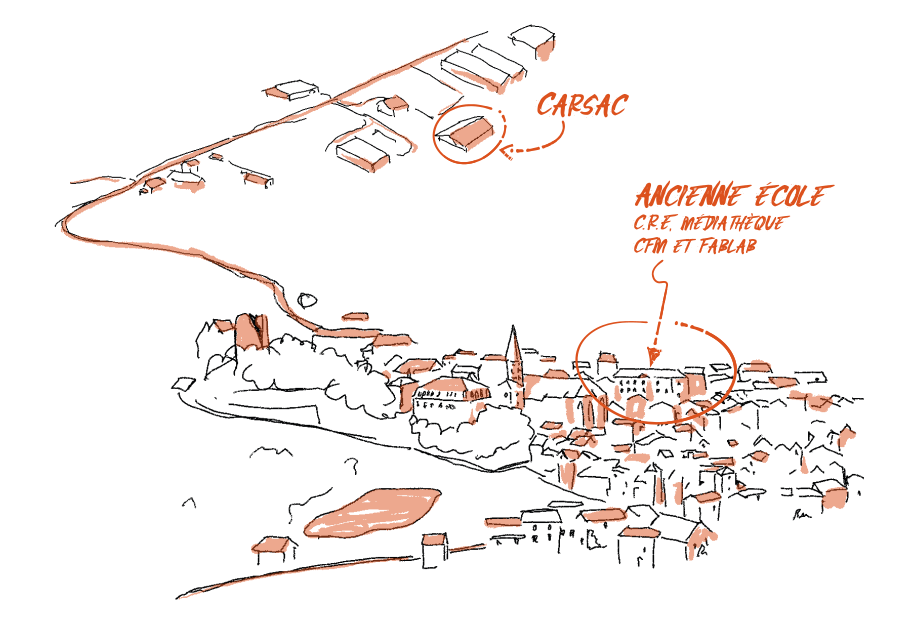 CARSAC
ANCIENNE ÉCOLE
C.R.E, MÉDIATHÈQUE
CFM ET FABLAB